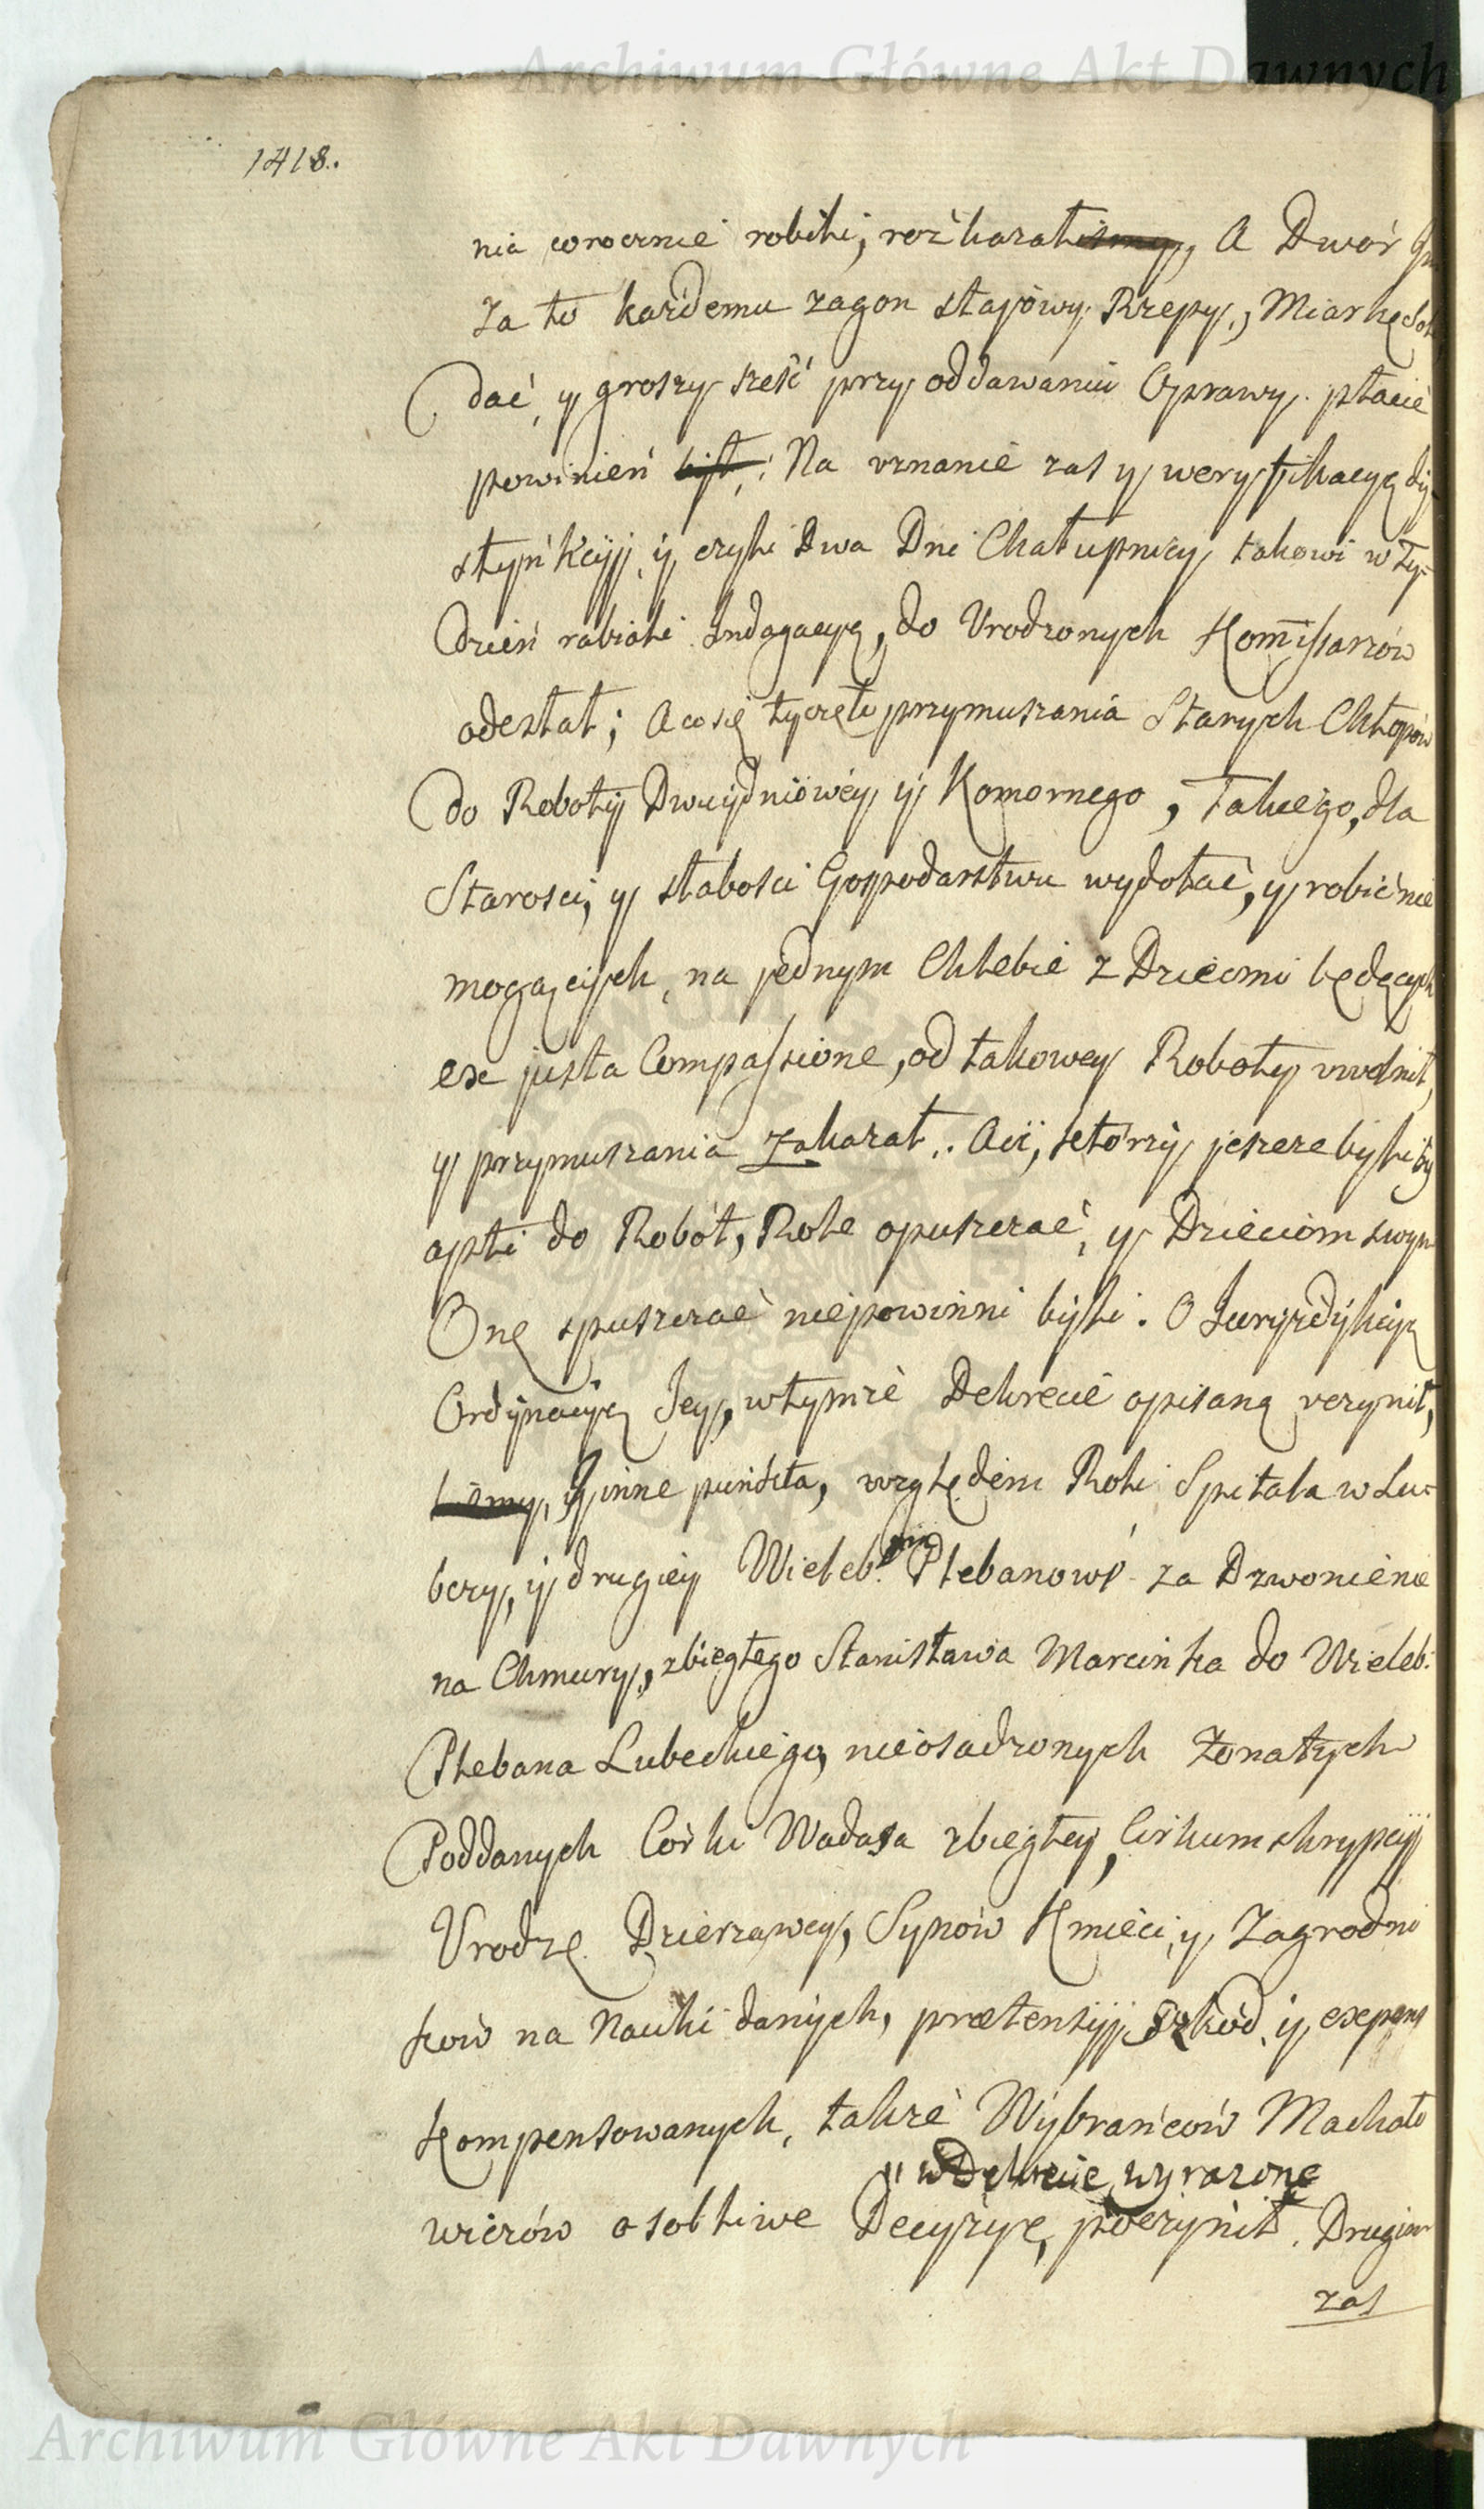 Archiwum Główne Akt Dawnych
1418.
nia corocznie robili, rozkazaliśmy, A Dwór
za to każdemu zagon stajowy Rzepy, Miarkę
dać, y groszy sześć przy oddawaniu Oprawy płacić
powinień był; Na uznanié zaś y weryfikacyą dy-
styńkcyj, y czyli Dwa Dni Chałupnicy takowi w ty-
dzień rabiali Indagacyą, do Urodzonych Komissarzów
odesłał; A co się tycze przymuszania Starych Chłopów
do Roboty Dwuydniowéy y Komornego, Takiego, dla
Starosci, y słabosci Gospodarstwu wydołać, y robić nie
mogących, na jednym Chlebie z Dziećmi będących
ex justa Compassione, od takowey Roboty uwolnił,
y przymuszania zakazał. A ci, którzy jeszcze byliby
apti do Robót, Role opuszczać, y Dzieciom swym
Onę spuszczać niepowinni byli. O Juryzdykcyą
Ordynacyą Jey, w tymże Dekrecie opisaną uczynił,
liśmy, y inne puńkta, względem Roli Spitala w Lu-
bczy, y drugiéy Wieleb. Plebanowi za Dzwonienie
na Chmury, zbiegłego Stanisława Marcinka do Wieleb:
Plebana Lubeckiego, nieosadzonych Żonatych
Poddanych Córki Wadasa zbiegłey, Cirkumskrypcyj
Urodzę Dzierzawcy, Synów Kmieci, y Zagrodni
ków na Nauki danych, prætensyj Szkód, y expens
kompensowanych, także Wybrańców Machało
" w Dekrecie wyrazone
wiczów osobliwe Decyzye, poczynił. Drugim
zaś
Archiwum Główne Akt Dawnych